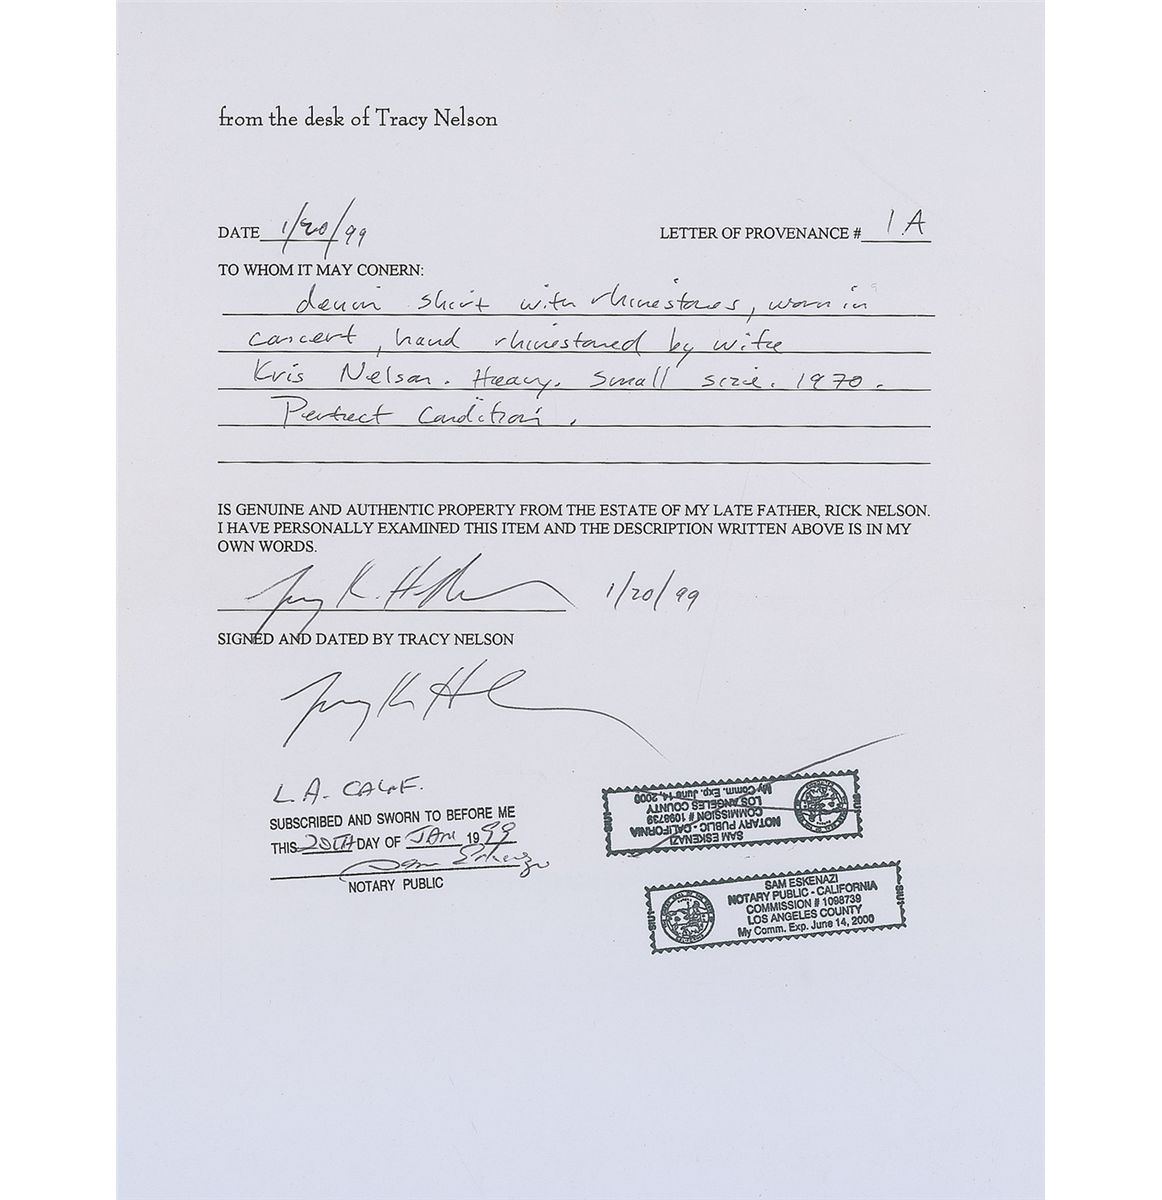 from the desk of Tracy Nelson
DATE 1/20/99 LETTER OF PROVENANCE # 1A
TO WHOM IT MAY CONERN:
denim shirt with rhinestones, worn in
concert, hand rhinestoned by wife
Kris Nelson. Heavy. Small size. 1970.
Perfect Condition.
IS GENUINE AND AUTHENTIC PROPERTY FROM THE ESTATE OF MY LATE FATHER, RICK NELSON.
I HAVE PERSONALLY EXAMINED THIS ITEM AND THE DESCRIPTION WRITTEN ABOVE IS IN MY
OWN WORDS.
1/20/99
SIGNED AND DATED BY TRACY NELSON
L.A. CALIF.
SUBSCRIBED AND SWORN TO BEFORE ME
THIS 20TH DAY OF JAN 1999
Sam Eskenazi
NOTARY PUBLIC
SAM ESKENAZI
NOTARY PUBLIC - CALIFORNIA
COMMISSION # 1098739
LOS ANGELES COUNTY
My Comm. Exp. June 14, 2000
SAM ESKENAZI
NOTARY PUBLIC - CALIFORNIA
COMMISSION # 1098739
LOS ANGELES COUNTY
My Comm. Exp. June 14, 2000